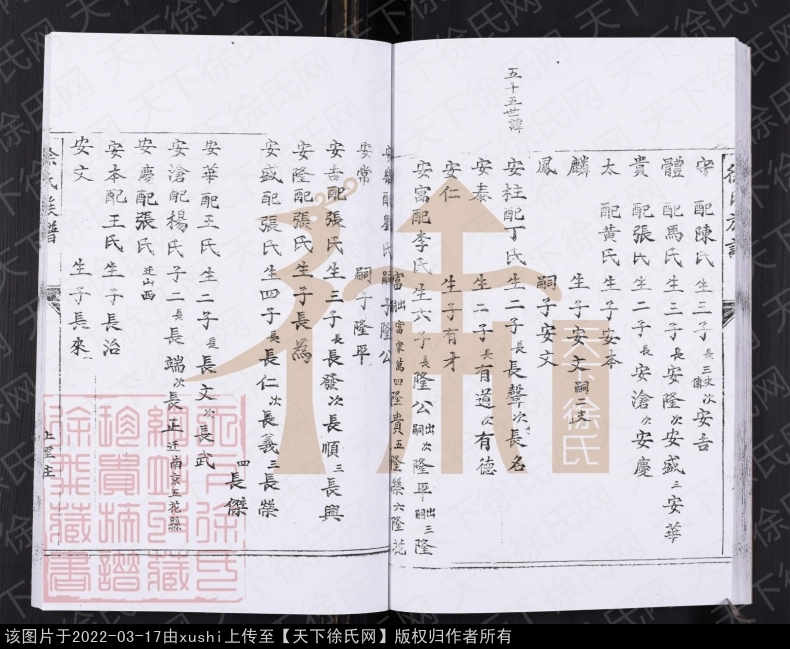 五十五世諱
守 配陳氏 生三子 長三支 次安吉
體 配馬氏 生三子 長安隆 次安盛 三安華
貴 配張氏 生二子 長安滄 次安慶
太 配黃氏 生子安本
麟 生子安文 嗣二支
鳳 嗣子安文
安柱配丁氏 生二子 長聲 次長名
安泰 生二子 長有道 次有德
安仁 生子有才
安富配李氏 生六子 長隆公 出嗣 次隆平 出嗣 三隆
富 四隆貴 五隆榮 六隆花
嗣子隆公
安常 嗣子隆平
安吉配張氏 生三子 長長發 次長順 三長興
安隆配張氏 生子長為
安盛配張氏 生四子 長長仁 次長義 三長榮
四長傑
安華配王氏 生二子 長長文 次長武
安滄配楊氏 子二 長長端 次長正 迁南京五花縣
安慶配張氏 迁山西
安本配王氏 生子長治
安文 生子長來
徐氏族譜
天下徐氏
该图片于2022-03-17由xushi上传至【天下徐氏网】版权归作者所有